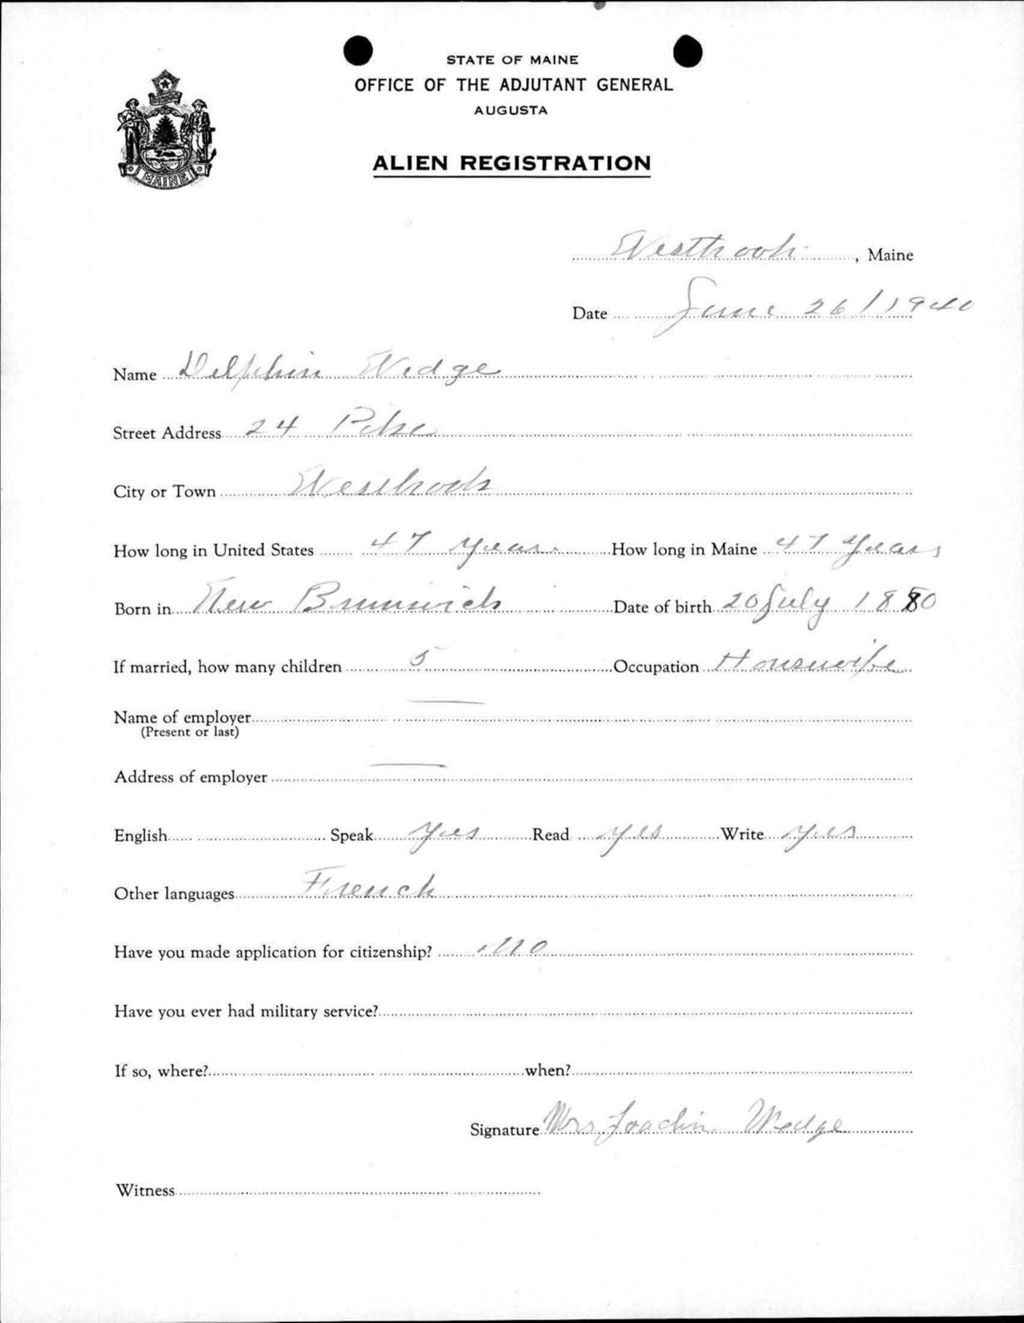 STATE OF MAINE
OFFICE OF THE ADJUTANT GENERAL
AUGUSTA
MAINE
ALIEN REGISTRATION
Westbrook, Maine
Date June 26/1940
Name Delphin Wedge
Street Address 24 Pike
City or Town Westbrook
How long in United States 47 years How long in Maine 47 years
Born in New Brunswick Date of birth 20 July 1880
If married, how many children 5 Occupation Housewife
Name of employer —
(Present or last)
Address of employer —
English Speak yes Read yes Write yes
Other languages French
Have you made application for citizenship? no
Have you ever had military service?
If so, where? when?
Signature Mrs Joachin Wedge
Witness